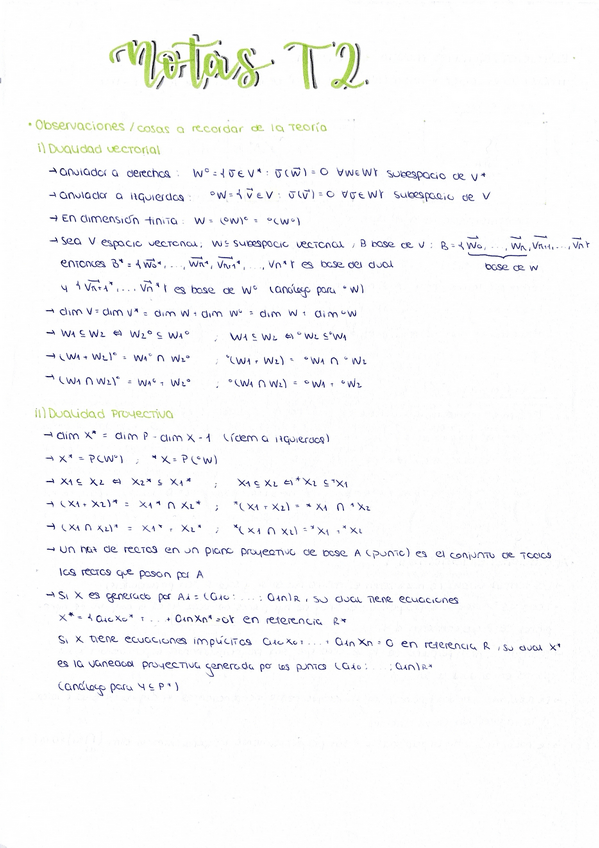 Notas T2
• Observaciones / cosas a recordar de la Teoría
i) Dualidad vectorial
→ anulador a derechas : W° = { σ̄ ∈ V* : σ̄(w⃗) = 0 ∀w⃗∈W } subespacio de V*
→ anulador a izquierdas : °W = { v⃗ ∈ V : σ̄(v⃗) = 0 ∀σ̄∈W } subespacio de V
→ En dimensión finita : W = (°W)° = °(W°)
→ Sea V espacio vectorial, W ≡ subespacio vectorial, B base de V : B = { w⃗0, ..., w⃗r, v⃗r+1, ..., v⃗n }
base de W
entonces B* = { w⃗0*, ..., w⃗r*, v⃗r+1*, ..., v⃗n* } es base del dual
y { v⃗r+1*, ... v⃗n* } es base de W° (análogo para °W)
→ dim V = dim V* = dim W + dim W° = dim W + dim °W
→ W1 ⊆ W2 ⇔ W2° ⊆ W1° ; W1 ⊆ W2 ⇔ °W2 ⊆ °W1
→ (W1 + W2)° = W1° ∩ W2° ; °(W1 + W2) = °W1 ∩ °W2
→ (W1 ∩ W2)° = W1° + W2° ; °(W1 ∩ W2) = °W1 + °W2
ii) Dualidad Proyectiva
→ dim X* = dim P - dim X - 1 (ídem a izquierdas)
→ X* = P(W°) ; *X = P(°W)
→ X1 ⊆ X2 ⇔ X2* ⊆ X1* ; X1 ⊆ X2 ⇔ *X2 ⊆ *X1
→ (X1 + X2)* = X1* ∩ X2* ; *(X1 + X2) = *X1 ∩ *X2
→ (X1 ∩ X2)* = X1* + X2* ; *(X1 ∩ X2) = *X1 + *X2
→ Un haz de rectas en un plano proyectivo de base A (punto) es el conjunto de todas
las rectas que pasan por A
→ Si X es generado por A1 = (a10 : ... : a1n)R , su dual tiene ecuaciones
X* = { a10x0* + ... + a1nxn* = 0 } en referencia R*
Si X tiene ecuaciones implícitas a10x0 + ... + a1nxn = 0 en referencia R , su dual X*
es la variedad proyectiva generada por los puntos (a10 : ... : a1n)R*
(análogo para Y ⊆ P*)